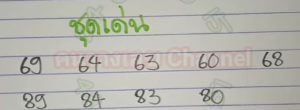 ชุดเด่น
69 64 63 60 68
89 84 83 80